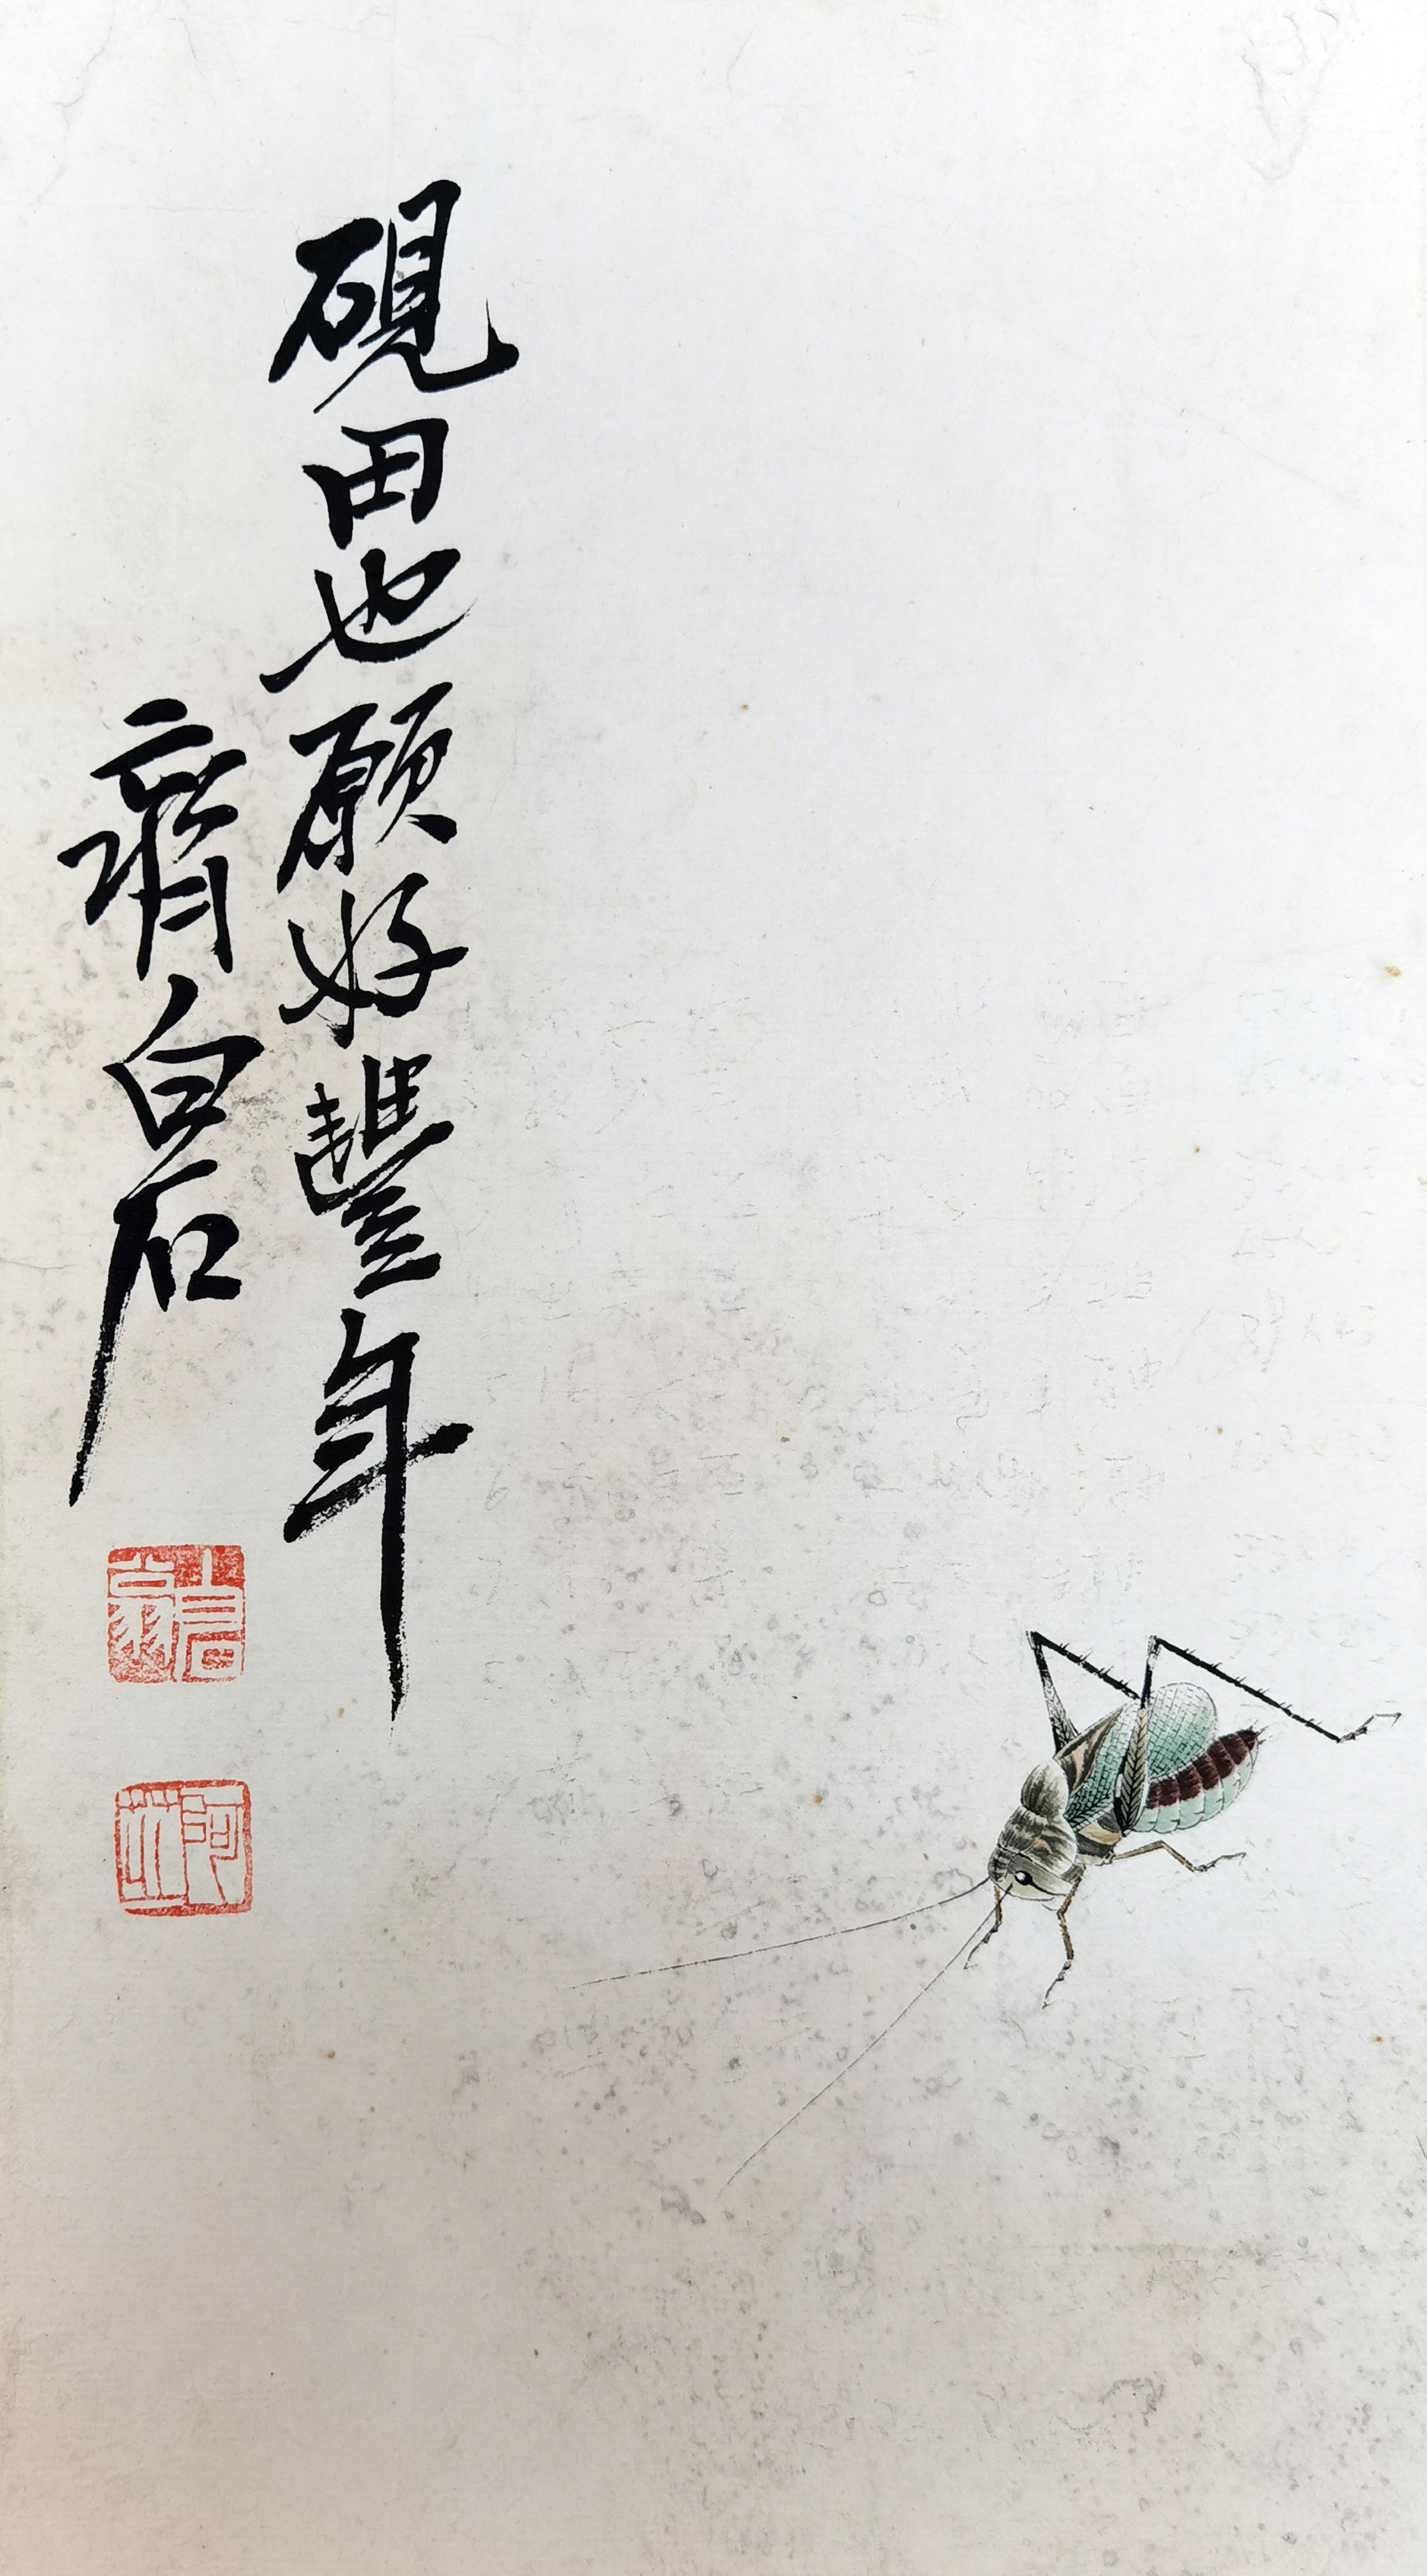 硯田也願好豐年
齊白石
白石翁
阿芝